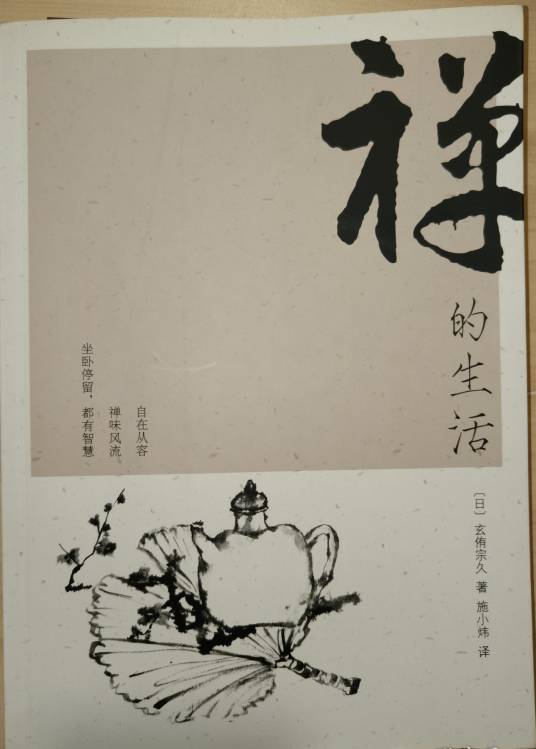 禅
的生活
自在从容
禅味风流
坐卧停留，都有智慧
〔日〕玄侑宗久 著 施小炜 译